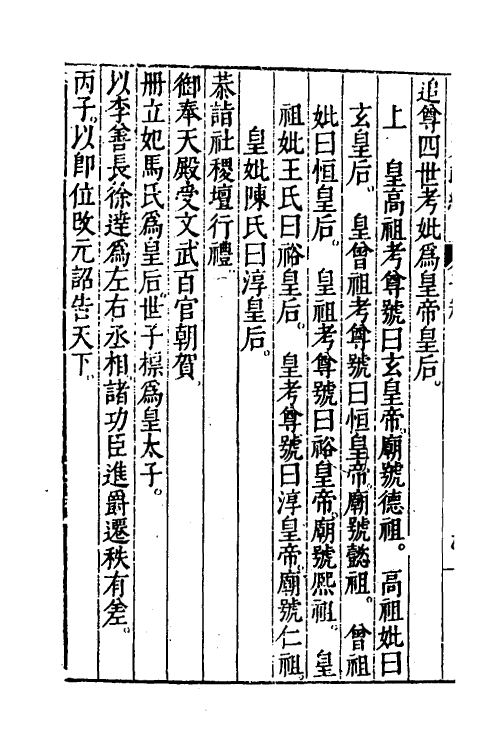 追尊四世考妣爲皇帝皇后。
上　皇高祖考尊號曰玄皇帝。廟號德祖。　高祖妣曰
玄皇后。　皇曾祖考尊號曰恒皇帝。廟號懿祖。　曾祖
妣曰恒皇后。　皇祖考尊號曰裕皇帝。廟號熈祖。　皇
祖妣王氏曰裕皇后。　皇考尊號曰淳皇帝。廟號仁祖。
皇妣陳氏曰淳皇后。
恭詣社稷壇行禮。
御奉天殿受文武百官朝賀。
冊立妃馬氏爲皇后。世子標爲皇太子。
以李善長徐達爲左右丞相。諸功臣進爵遷秩有差。
丙子。以卽位改元詔告天下。